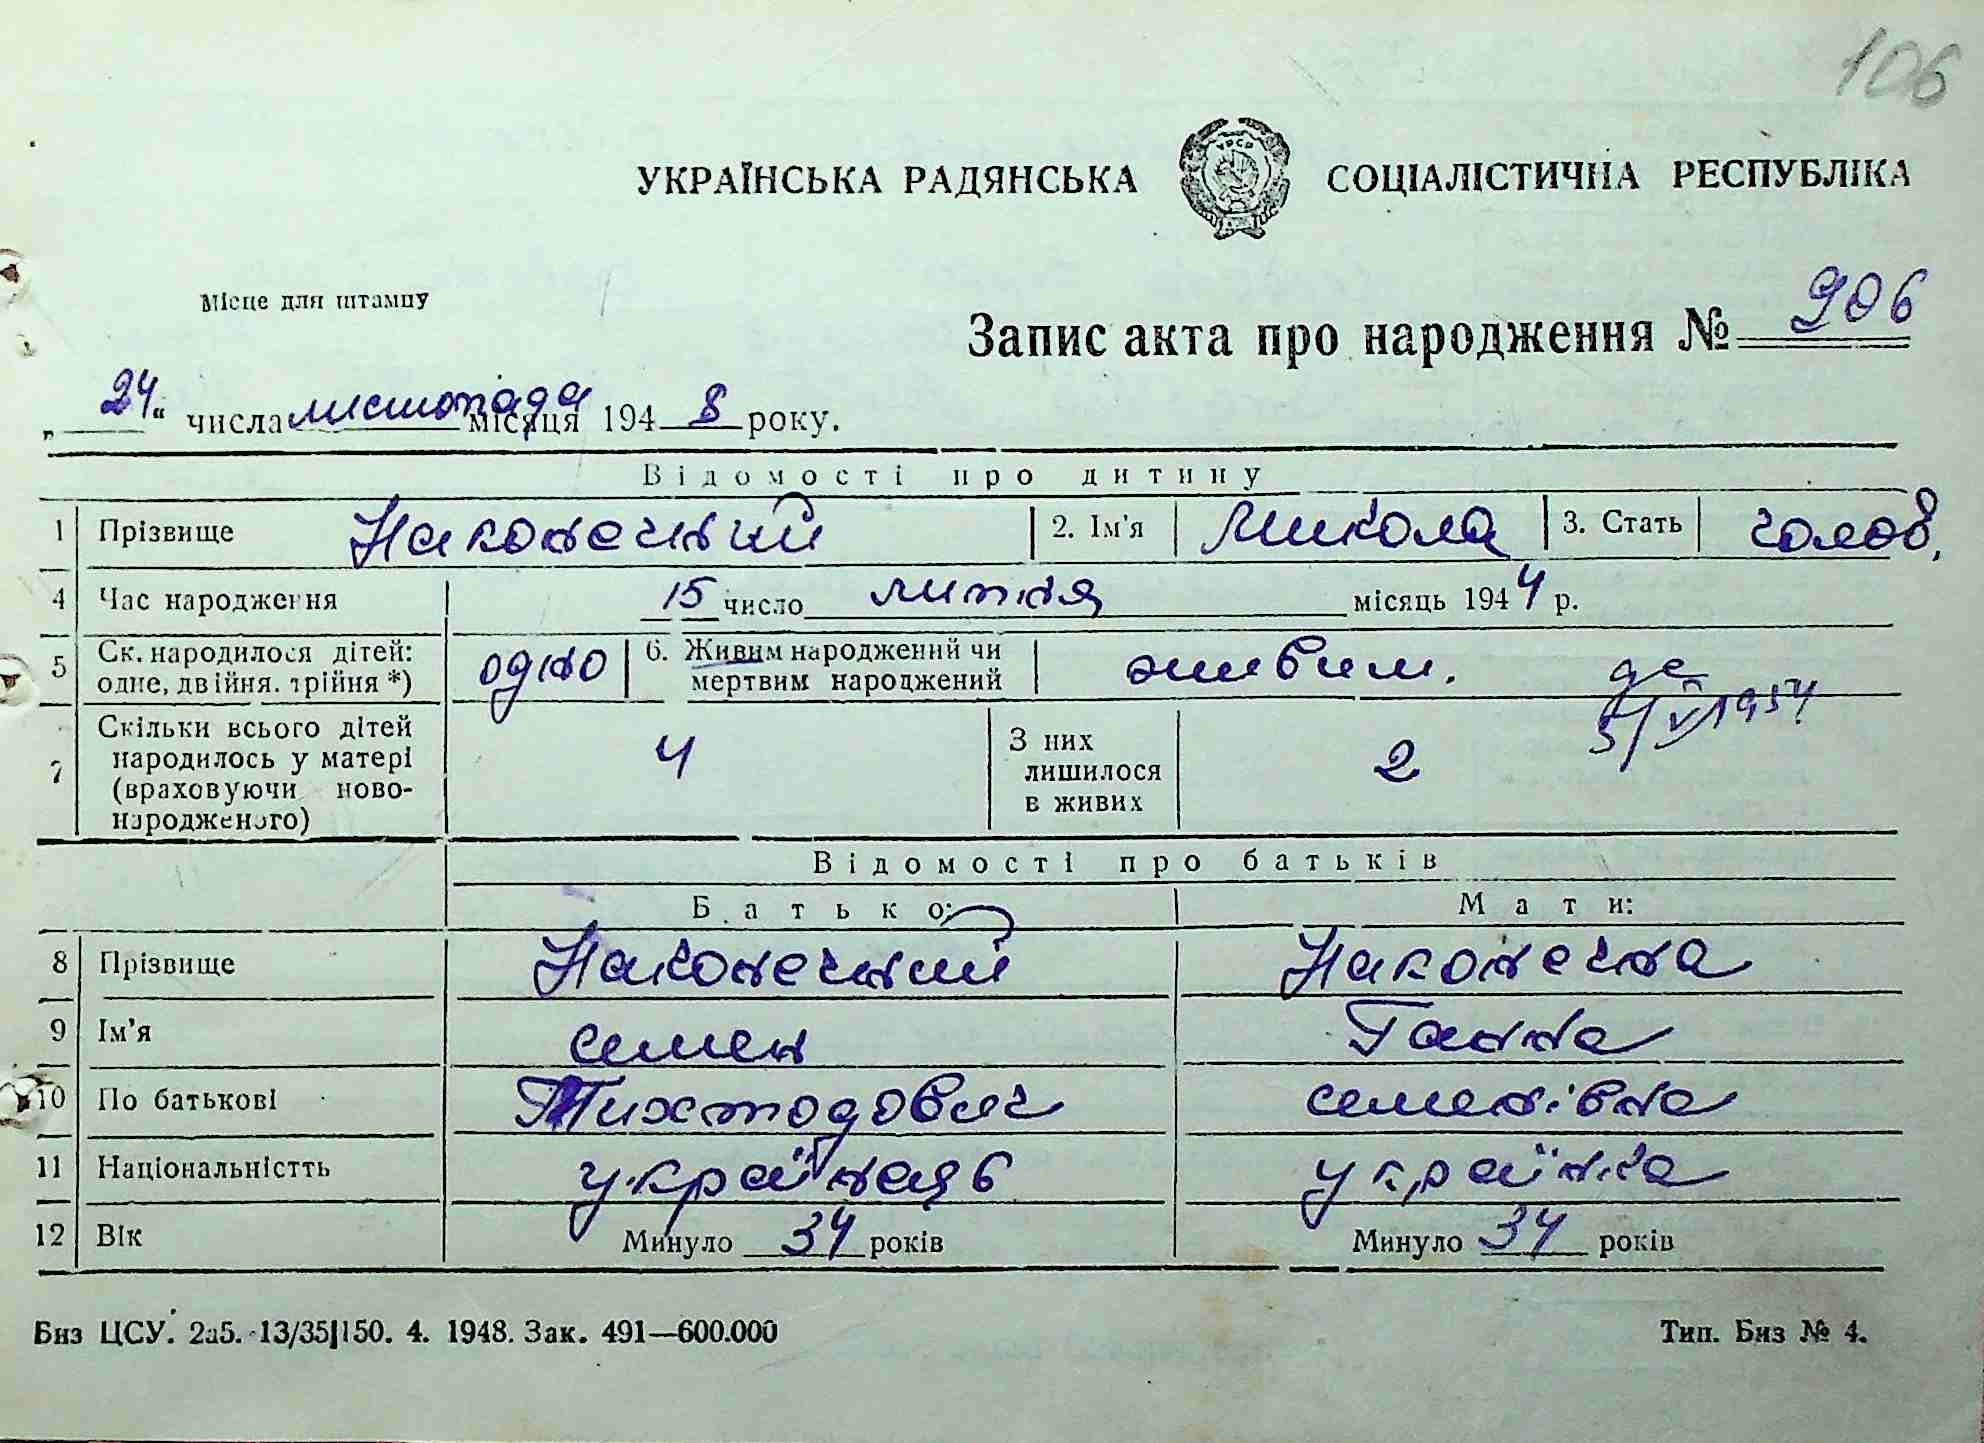 106
УКРАЇНСЬКА РАДЯНСЬКА СОЦІАЛІСТИЧНА РЕСПУБЛІКА
УРСР
Місце для штампу
Запис акта про народження № 906
„24“ числа листопада місяця 1948 року.
Відомості про дитину
1 Прізвище Наконечний 2. Ім'я Микола 3. Стать чолов.
4 Час народження 15 число липня місяць 1944 р.
5 Ск. народилося дітей: одне, двійня, трійня *) одно 6. Живим народжений чи мертвим народжений живим.
5/V 1954
7 Скільки всього дітей народилось у матері (враховуючи ново-народженого) 4 З них лишилося в живих 2
Відомості про батьків
Батько: Мати:
8 Прізвище Наконечний Наконечна
9 Ім'я семен Ганна
10 По батькові семенівна
11 Національністть українець українка
12 Вік Минуло 34 років Минуло 34 років
Биз ЦСУ. 2а5. 13/35|150. 4. 1948. Зак. 491—600.000 Тип. Биз № 4.